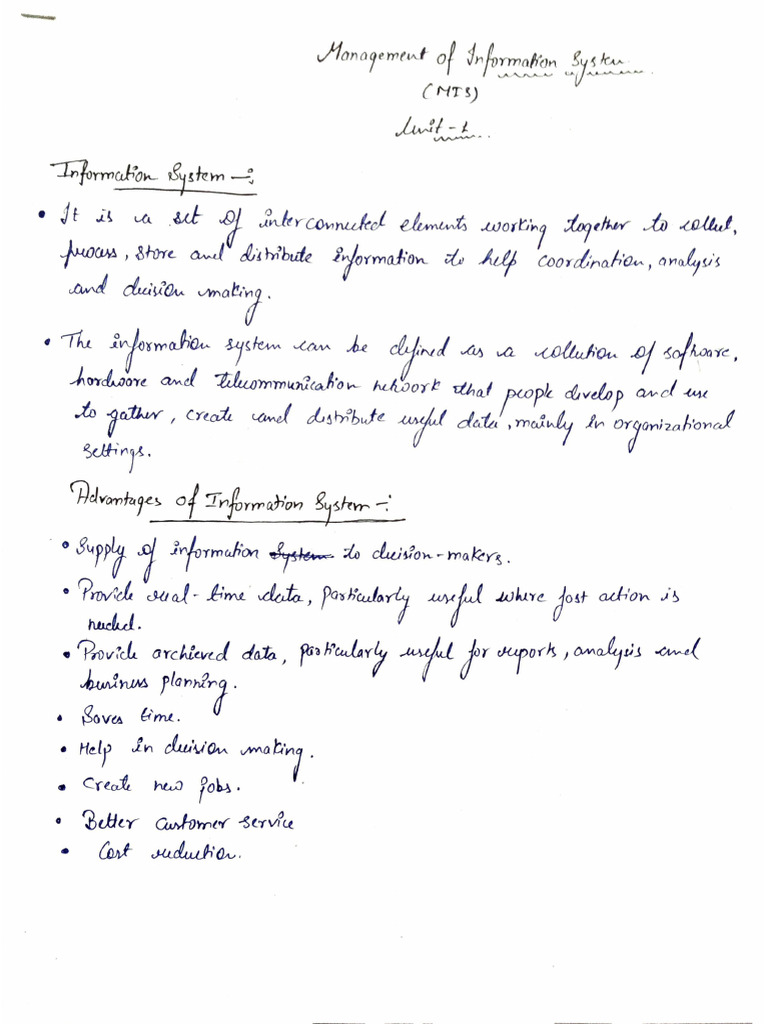 Management of Information System
(MIS)
Unit-1
Information System -:
• It is a set of interconnected elements working together to collect,
process, store and distribute information to help coordination, analysis
and decision making.
• The information system can be defined as a collection of software,
hardware and telecommunication network that people develop and use
to gather, create and distribute useful data, mainly in organizational
settings.
Advantages of Information System -:
• Supply of information System to decision-makers.
• Provide real-time data, particularly useful where fast action is
needed.
• Provide archieved data, particularly useful for reports, analysis and
business planning.
• Saves time.
• Help in decision making.
• Create new jobs.
• Better customer service
• Cost reduction.